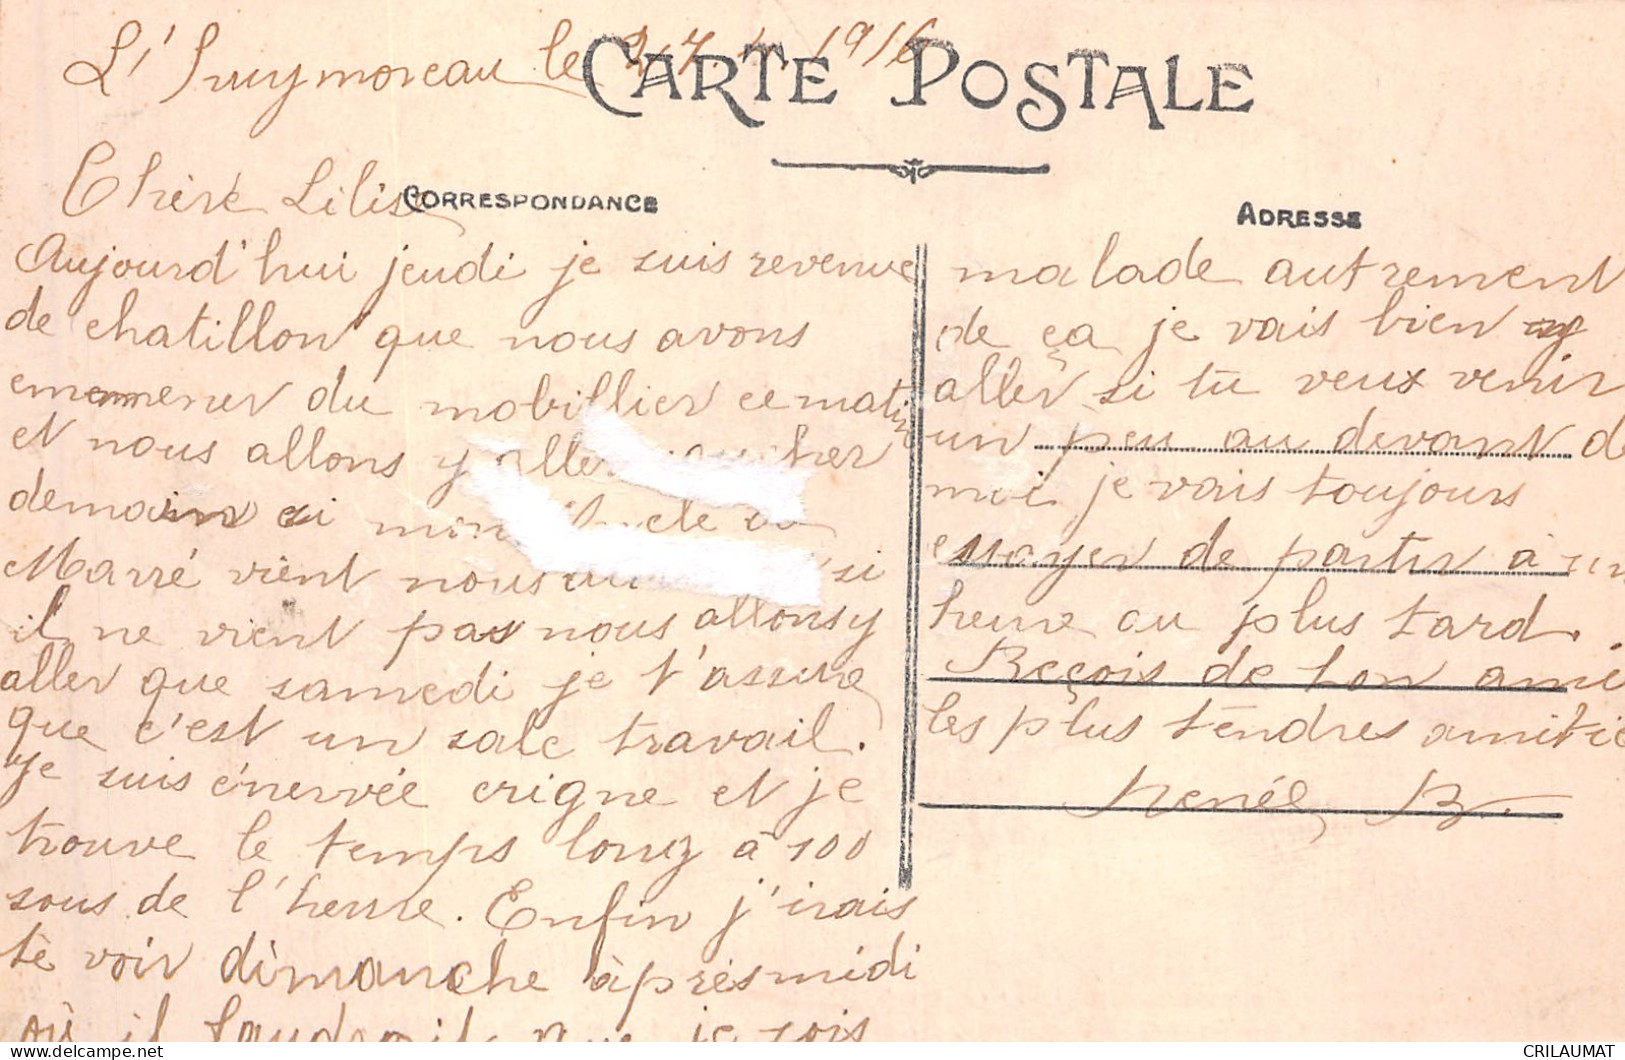 L' Puymoreau le 27. 4. 1916
CARTE POSTALE
CORRESPONDANCE
ADRESSE
Chère Lilise
Aujourd'hui jeudi je suis revenue
de chatillon que nous avons
emmener du mobillier ce matin
et nous allons y aller
demain si mon
Marré vient nous si
il ne vient pas nous allons y
aller que samedi je t'assure
que c'est un sale travail.
Je suis énervée crigne et je
trouve le temps long à 100
sous de l'heure. Enfin j'irais
te voir dimanche après midi
où il faudrait que je sois
malade autrement
de ça je vais bien y
aller si tu veux venir
un peu au devant de
moi je vais toujours
essayer de partir à une
heure au plus tard.
Reçois de ton amie
les plus tendres amitié
Renée B.
CRILAUMAT